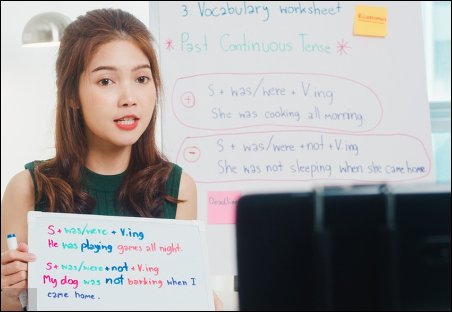 3. Vocabulary worksheet
* Past Continuous Tense *
+ S + was/were + V.ing
She was cooking all morning
- S + was/were + not + V.ing
She was not sleeping when she came home.
Deadline
S + was/were + V.ing
He was playing games all night.
S + was/were + not + V.ing
My dog was not barking when I
came home.